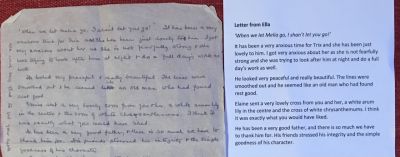 "When we let Melia go, I shan't let you go!" It has been a very
anxious time for Tris and she has been just lovely to him. I got
very anxious about her as she is not fearfully strong & she
was trying to look after him at night & do a full day's work as
well.
He looked very peaceful & really beautiful. The lines were
smoothed out & he seemed an old man who had found
rest good.
Elaine sent a very lovely cross from you & her, a white arum lily
in the centre & the cross of white chrysanthemums. I think it
was exactly what you would have liked.
He has been a very good father, & there is so much we have to
thank him for. His friends stressed his integrity & the simple
goodness of his character.
Letter from Ella
'When we let Melia go, I shan't let you go!'
It has been a very anxious time for Tris and she has been just
lovely to him. I got very anxious about her as she is not fearfully
strong and she was trying to look after him at night and do a full
day's work as well.
He looked very peaceful and really beautiful. The lines were
smoothed out and he seemed like an old man who had found
rest good.
Elaine sent a very lovely cross from you and her, a white arum
lily in the centre and the cross of white chrysanthemums. I think
it was exactly what you would have liked.
He has been a very good father, and there is so much we have
to thank him for. His friends stressed his integrity and the simple
goodness of his character.